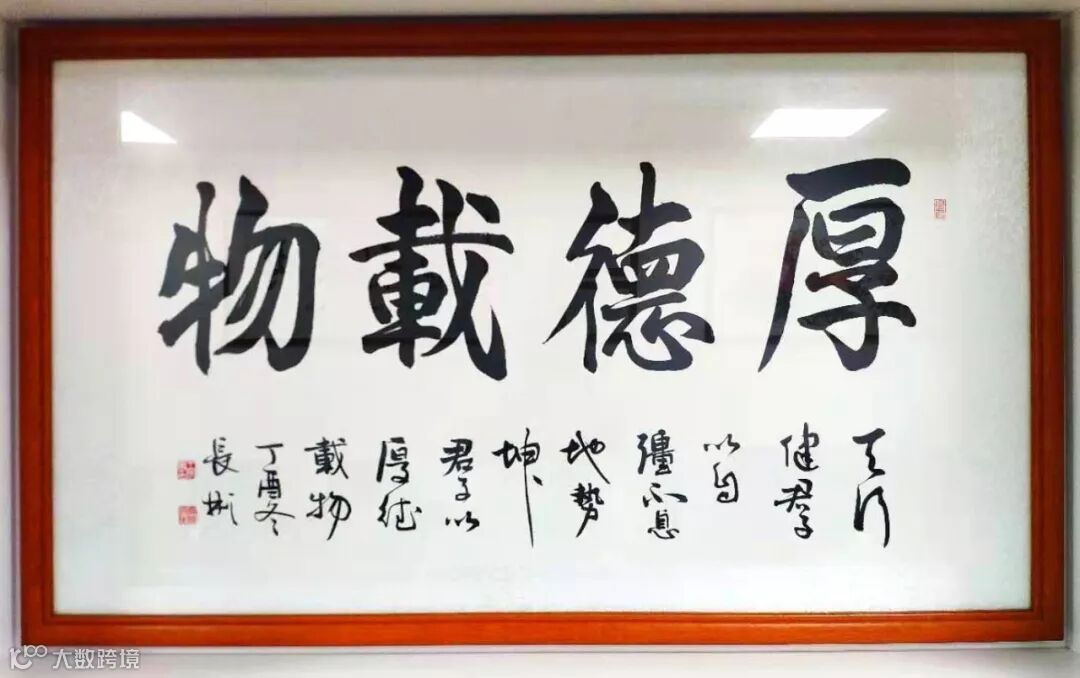 厚德載物
天行
健君子
以自
彊不息
地勢
坤
君子以
厚德
載物
丁酉冬
長彬
大数跨境